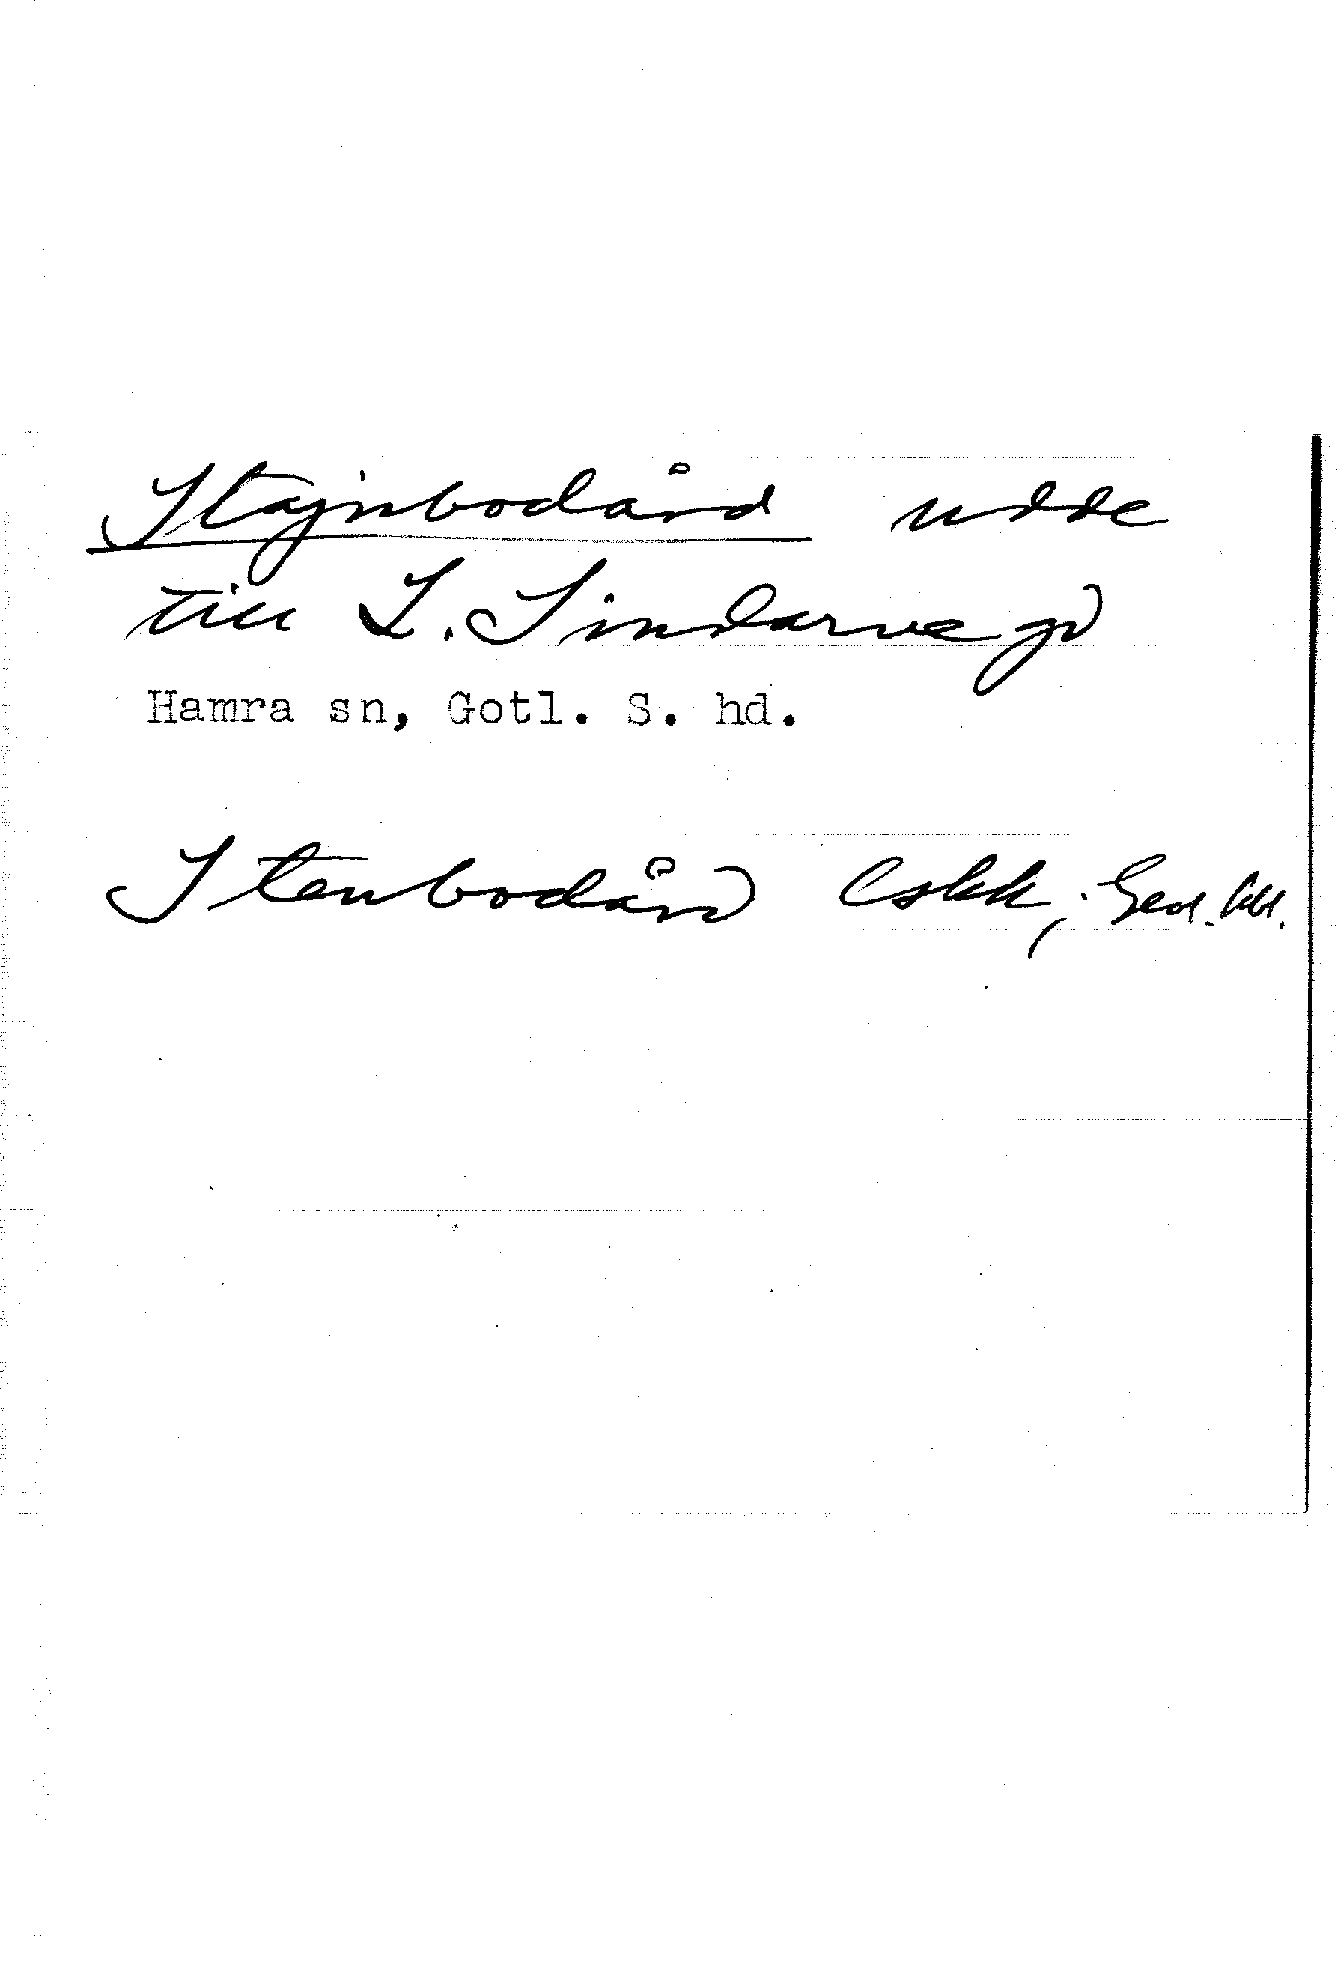 Stajnbodård udde
till L. Sindarve gd
Hamra sn, Gotl. S. hd.
Stenbodård Eskk,